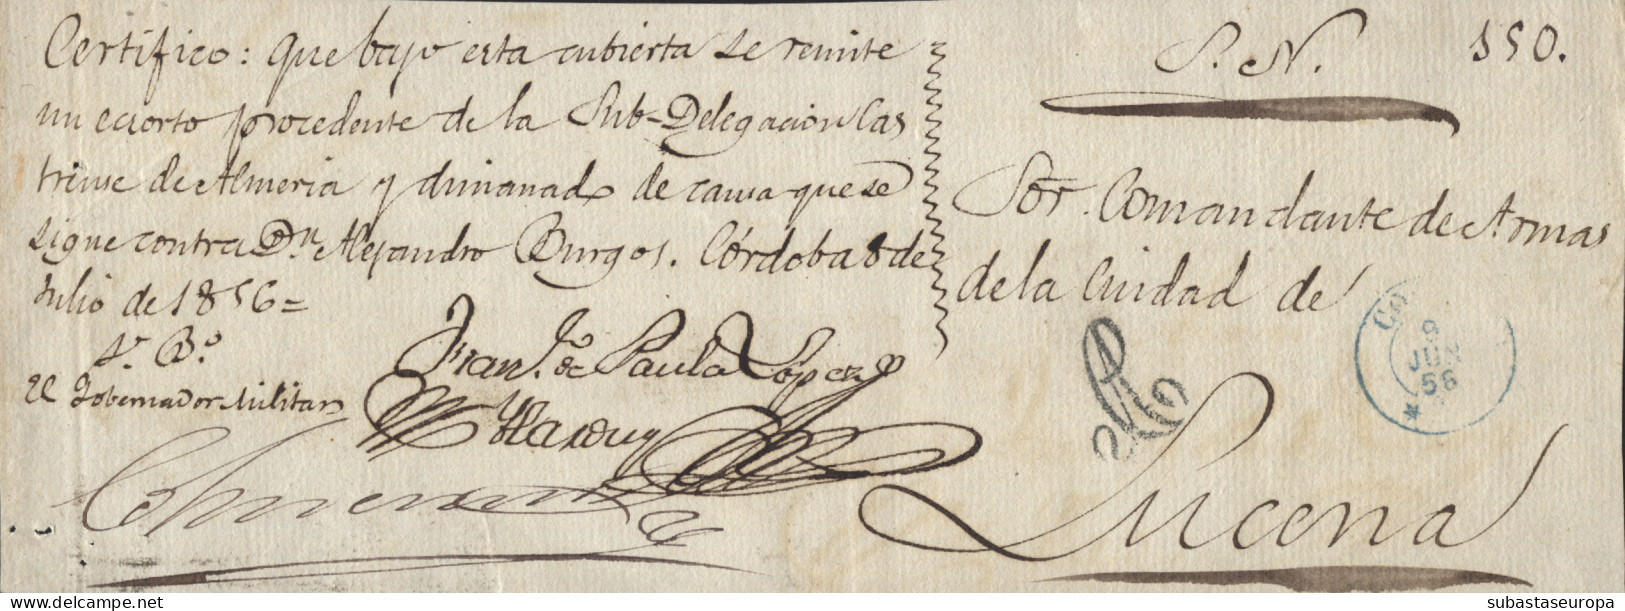 Certifico: que bajo esta cubierta se remite
un ecsorto procedente de la Sub-Delegacion Cas
trense de Almeria y dimanado de causa que se
sigue contra Dn. Alejandro Burgos. Córdoba 8 de
Julio de 1856=
V. Bo.
El Gobernador Militar
Fran.co de Paula López
S. N.
150.
Sor. Comandante de Armas
de la Ciudad de
Lucena
CO
9
JUN
56
subastaseuropa